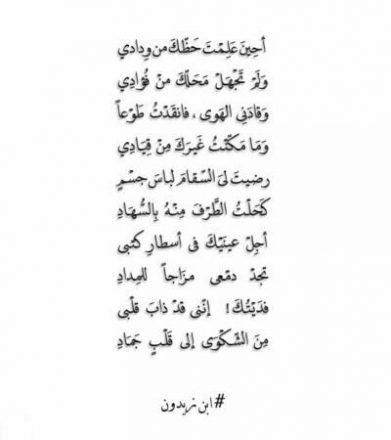 أحِينَ عَلِمْتَ حَظّكَ من وِدادي
وَلَمْ تَجْهَلْ مَحَلّكَ منْ فُؤادِي
وَقادَنِي الهَوى، فانقَدْتُ طَوْعاً
وَمَا مَكّنْتُ غَيرَكَ مِنْ قِيَادِي
رضيتَ ليَ السّقامَ لباسَ جسْمٍ
كَحَلْتُ الطَّرْفَ مِنْهُ بِالسُّهَادِ
أجِلْ عينَيْكَ في أسطارِ كتبي
تجدْ دمْعي مزَاجاً للمِدادِ
فدَيْتُكَ! إنّني قدْ ذابَ قلْبي
مِنَ الشّكْوَى إلى قَلْبٍ جَمَادِ
#ابن زيدون